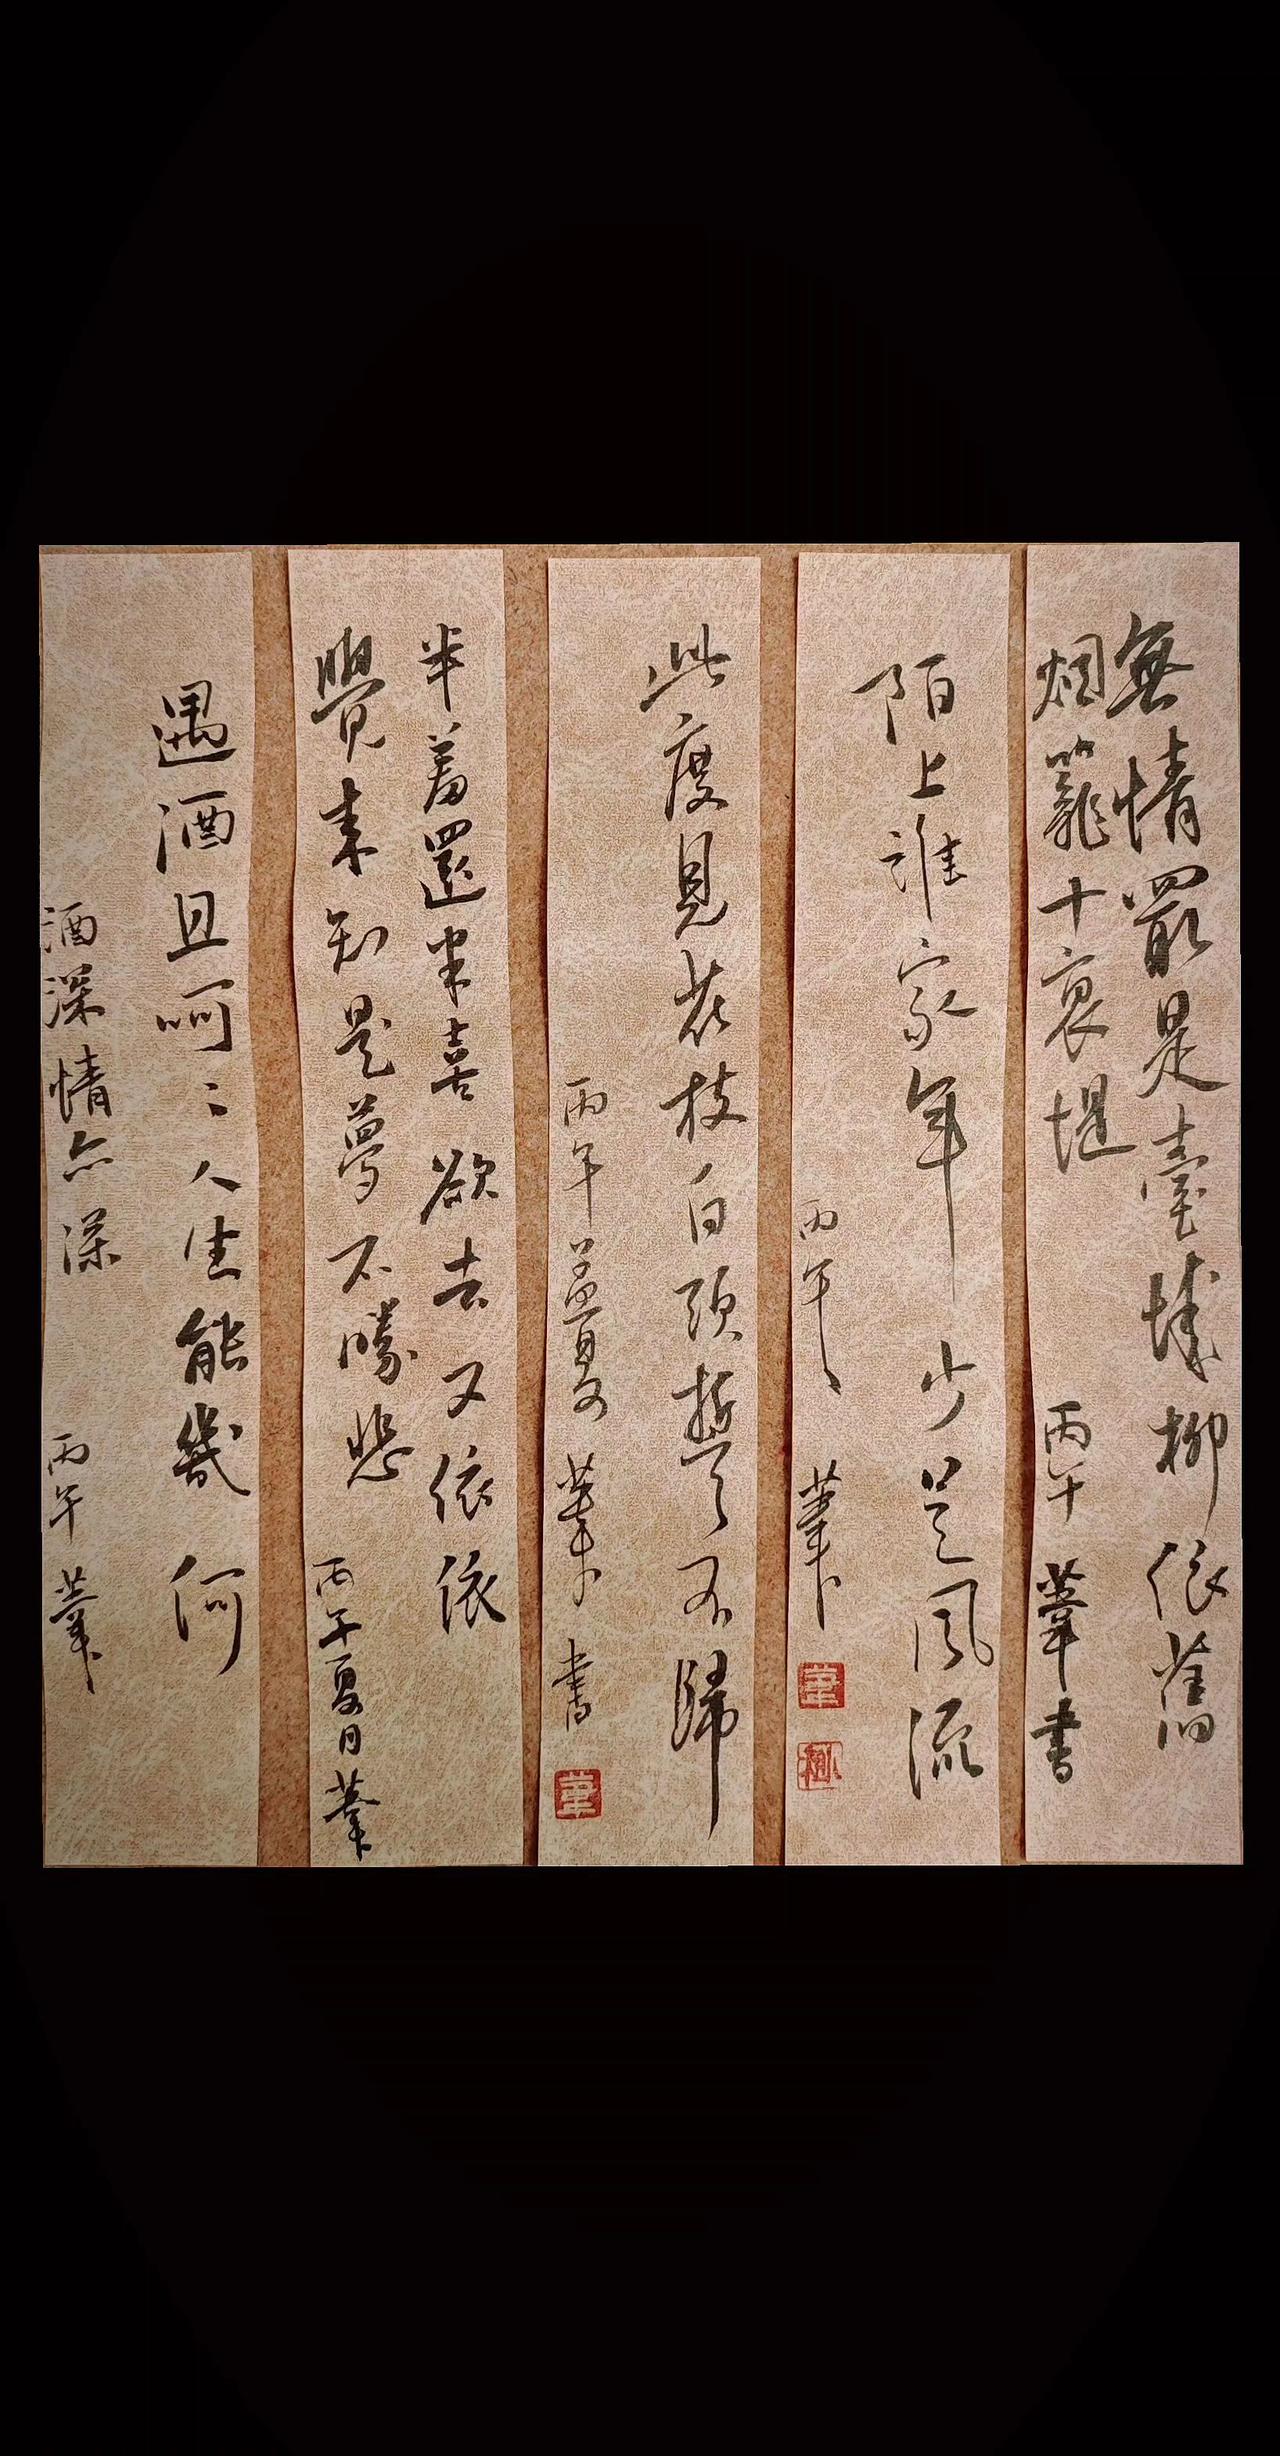 無情最是臺城柳依舊
烟籠十裏堤
丙午 葦書
陌上誰家年少足風流
丙午 葦
葦
此度見花枝白頭誓不歸
丙午孟夏 葦 書
葦
半羞還半喜欲去又依依
覺來知是夢不勝悲
丙午夏月葦
遇酒且呵〻人生能幾何
酒深情亦深
丙午 葦